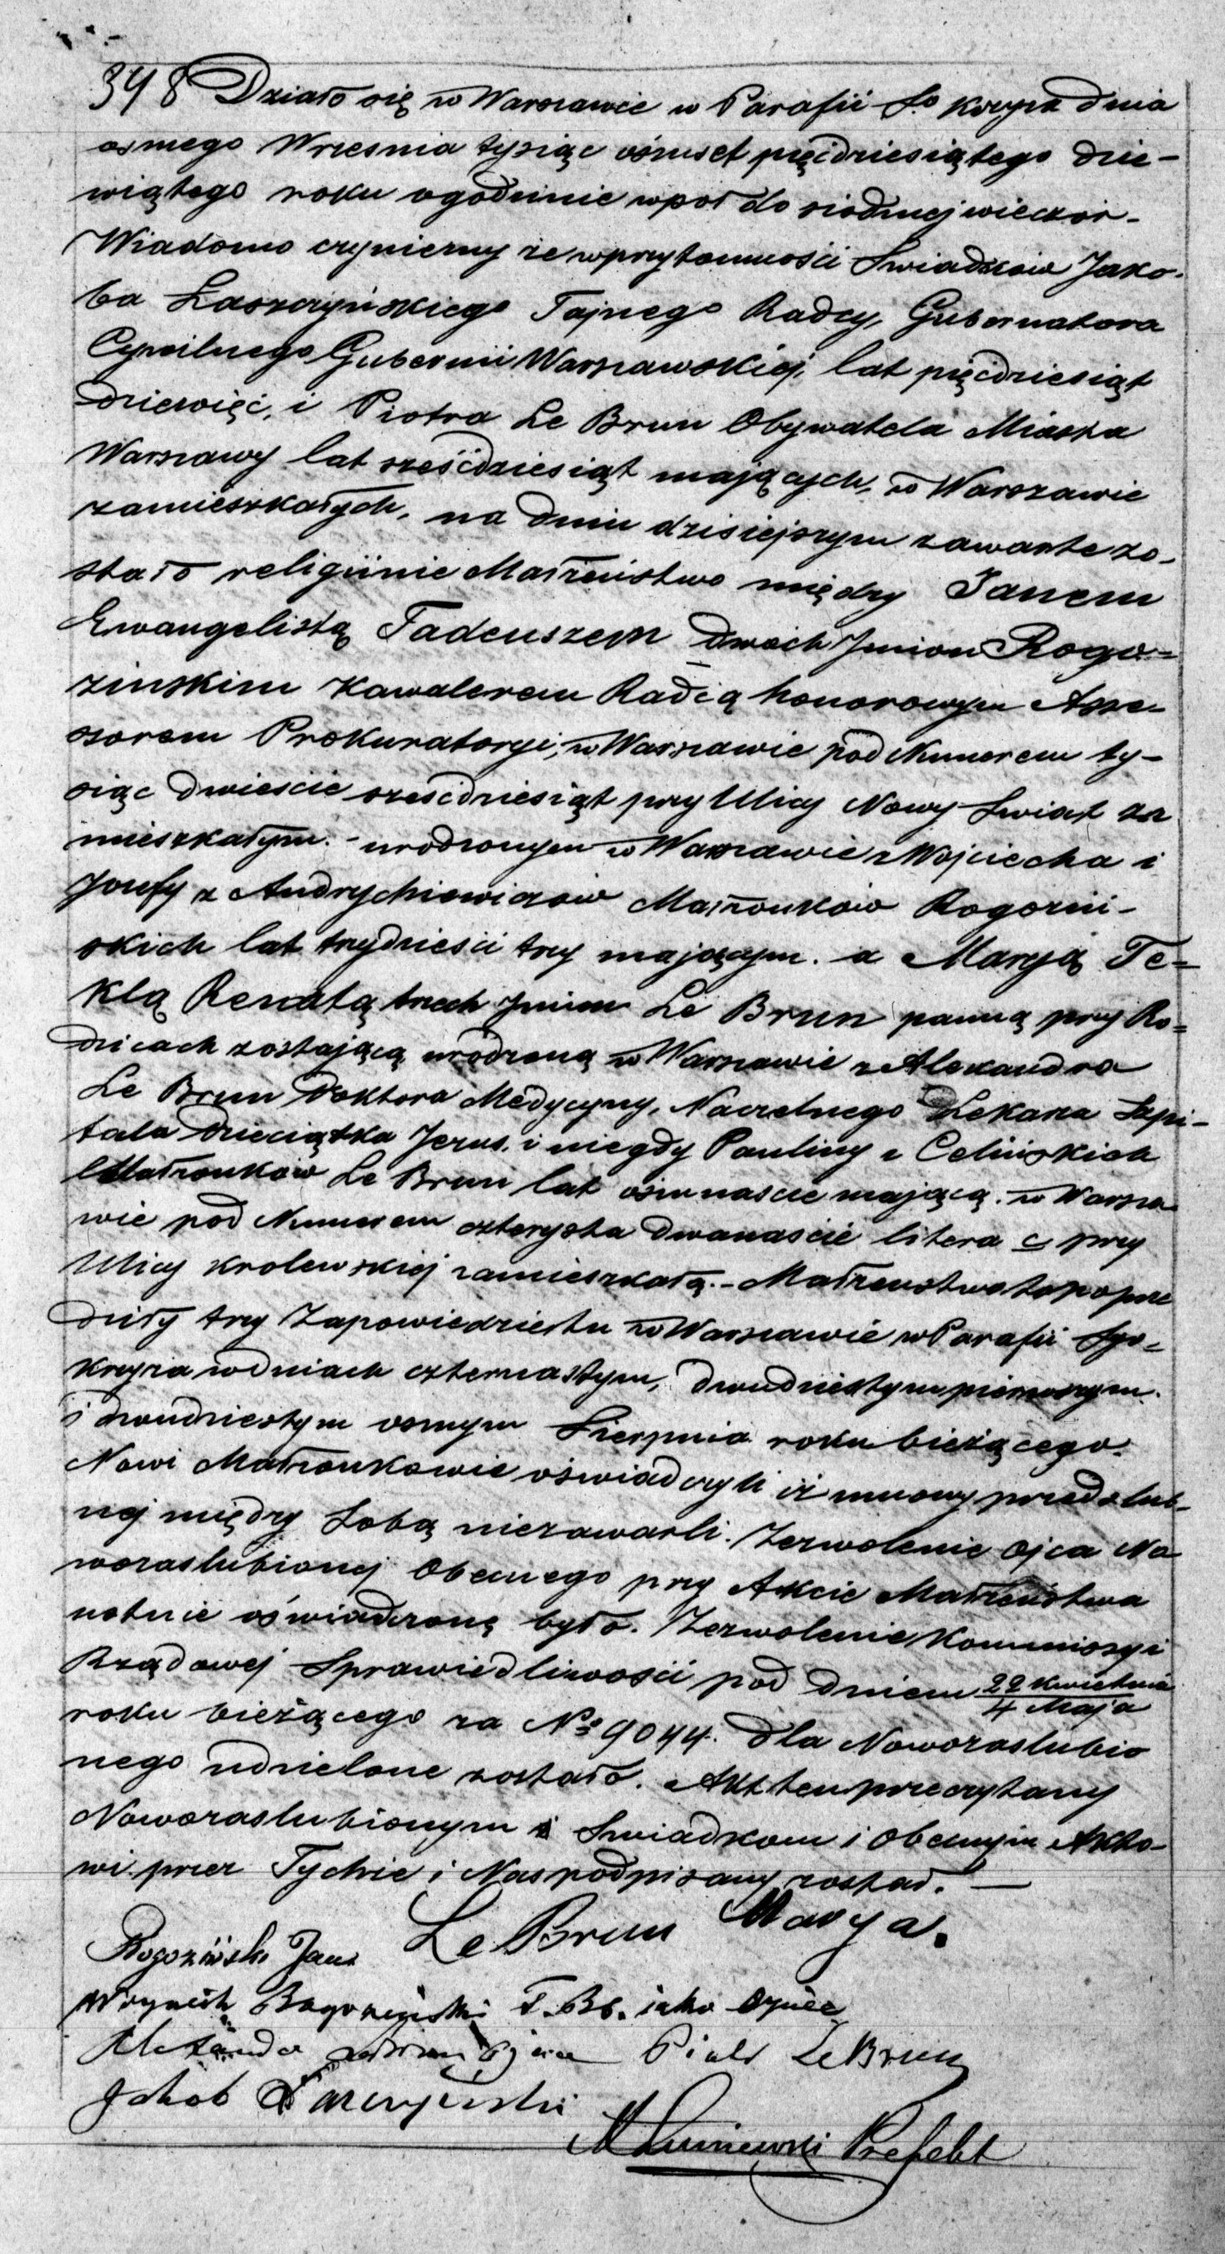 398 Działo się w Warszawie w Parafii Sgo Krzyża dnia
osmego Wrzesnia tysiąc ośmset pięćdziesiątego dzie-
wiątego roku o godzinie wpoł do siodmej wieczor-
Wiadomo czyniemy że w przytomności Swiadków Jako-
ba Łaszczyńskiego Tajnego Radcy, Gubernatora
Cywilnego Gubernii Warszawskiej, lat pięćdziesiąt
dziewięć, i Piotra Le Brun Obywatela Miasta
Warszawy lat sześćdziesiąt mających, w Warszawie
zamieszkałych, na dniu dzisiejszym zawarte zo-
stało religijnie Małżeństwo między Janem
Ewangelistą Tadeuszem dwóch Jmion Rogo-
zinskim Kawalerem Radcą honorowym Asse-
sorem Prokuratoryi, w Warszawie pod Numerem ty-
siąc dwieście sześćdziesiąt przy Ulicy Nowy Swiat za
mieszkałym. - urodzonym w Warszawie z Wojciecha i
Jozefy z Andrychiewiczów Małżonków Rogozin-
skich lat trzydzieści trzy mającym. a Maryą Te-
klą Renatą trzech Jmion Le Brun panną przy Ro-
dzicach zostającą urodzoną w Warszawie z Alexandra
Le Brun Doktora Medycyny, Naczelnego Lekarza Szpi-
tala Dzieciątka Jezus, i niegdy Pauliny z Celińskich
Małżonków Le Brun lat ośmnaście mającą. w Warsza
wie pod Numerem czterysta dwanaście litera c przy
Ulicy Krolewskiej zamieszkałą. - Małżeństwo to poprze
dziły trzy Zapowiedzie tu w Warszawie w Parafii Sgo-
Krzyża w dniach czternastym, dwudziestym pierwszym.
i dwudziestym osmym Sierpnia roku bieżącego.
Nowi Małżonkowie oświadczyli iż umowy przedslub-
nej między Sobą niezawarli. Zezwolenie Ojca No
wozaslubionej Obecnego przy Akcie Małżeństwa
ustnie oświadczone było. Zezwolenie Kommissyi
Rządowej Sprawiedliwości pod dniem 22 Kwietnia
4 Maja
roku bieżącego za No 9044. dla Nowozaslubio
nego udzielone zostało. Akt ten przeczytany
Nowozaslubionym i Swiadkom i Obecnym Akto-
wi. przez Tychże i Nas podpisany został. —
Rogoziński Jan Le Brun Marya.
Woyciech Rogoziński jako Ojciec
Alexander Le Brun Ojciec Piotr Le Brun
Jakob Łaszczyński
Prefekt